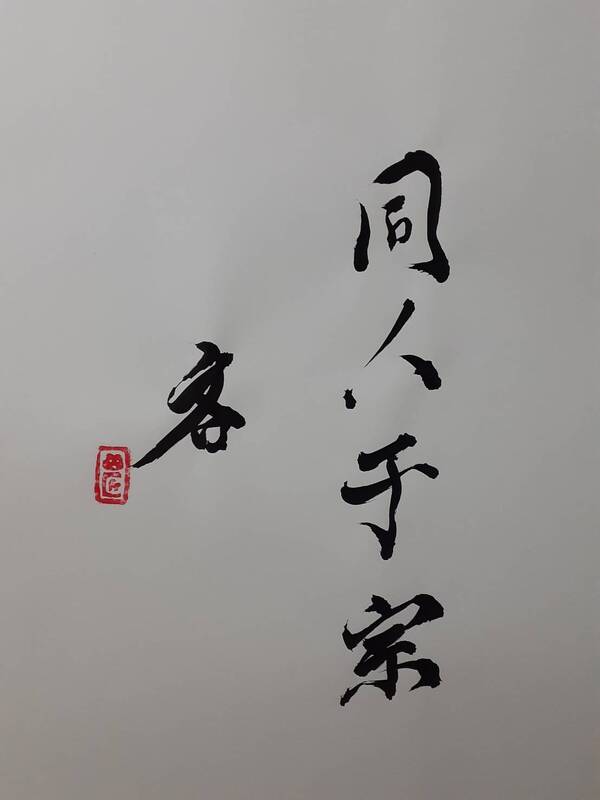 同人于宗
客